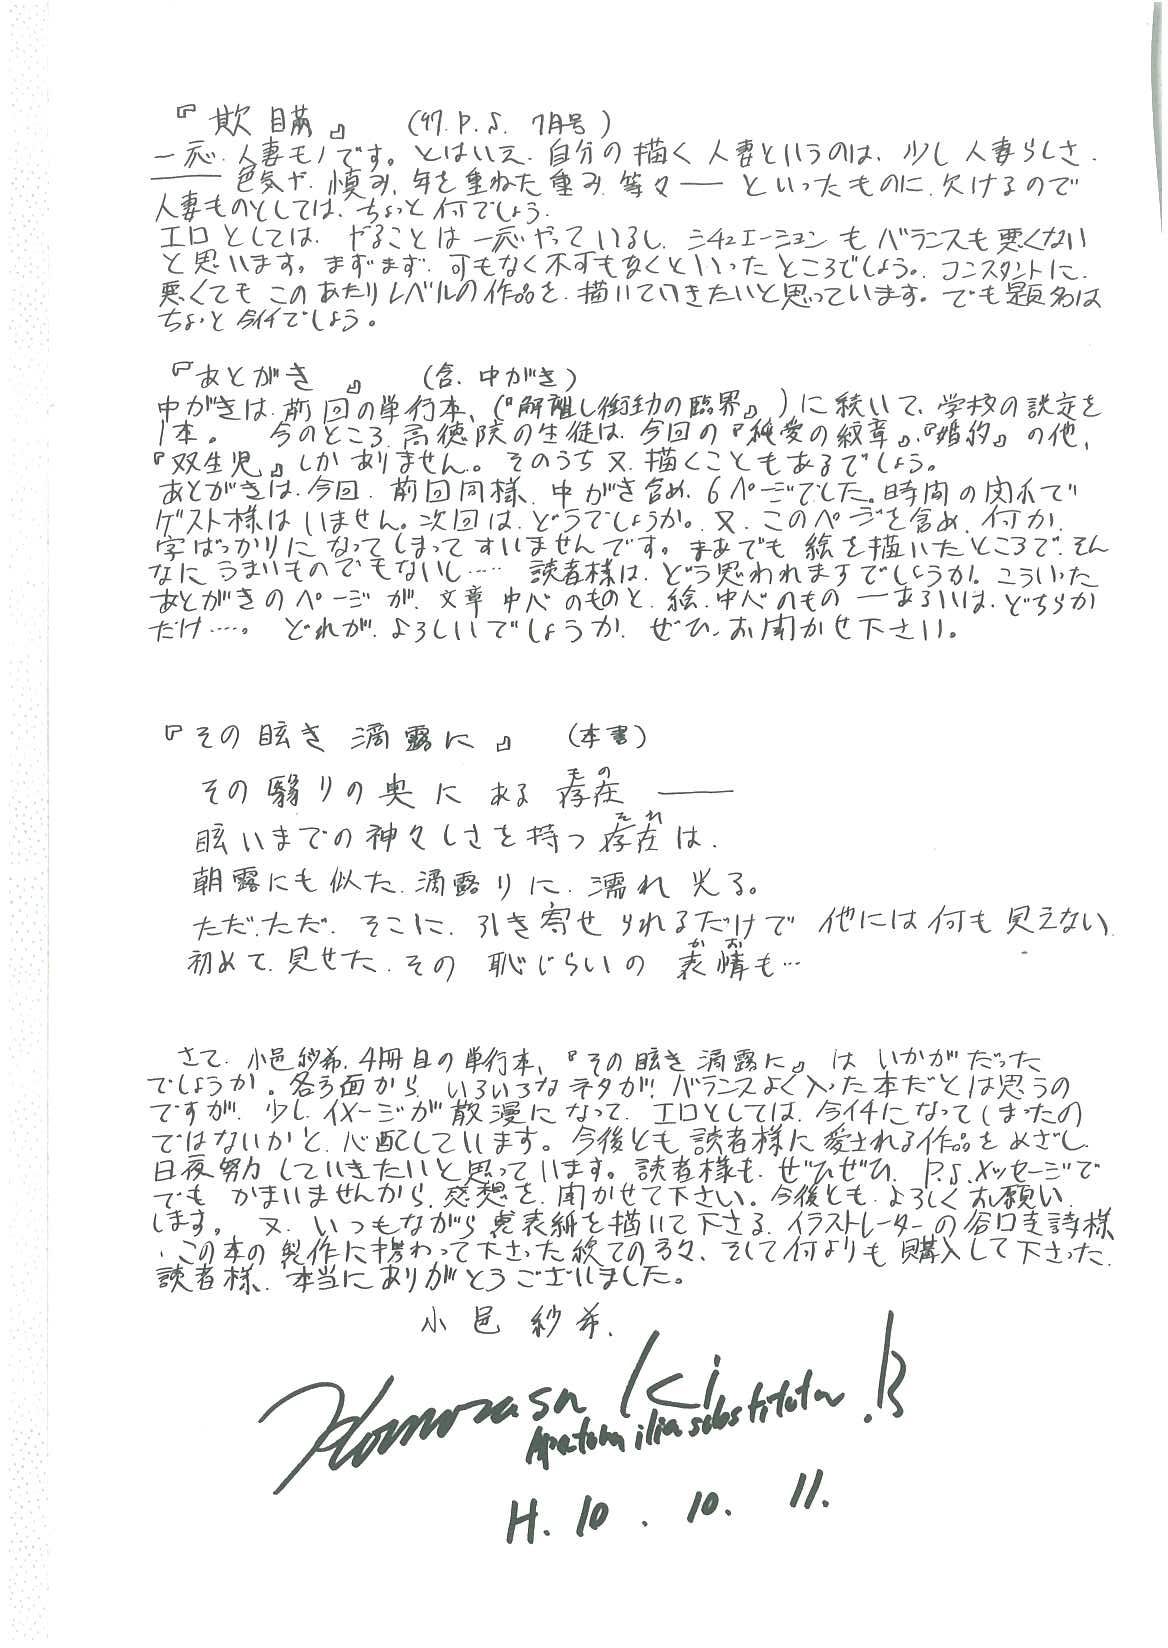 『欺瞞』 ('97. P.S. 7月号)
一応、人妻モノです。とはいえ、自分の描く人妻というのは、少し人妻らしさ、
――色気や、慎み、年を重ねた重み、等々――といったものに、欠けるので
人妻ものとしては、ちょっと何でしょう。
エロとしては、やることは一応やっているし、シチュエーションもバランスも悪くない
と思います。まずまず、可もなく不可もなくといったところでしょう。コンスタントに、
悪くてもこのあたりレベルの作品を、描いていきたいと思っています。でも題名は
ちょっと今イチでしょう。
『あとがき』 (含、中がき)
中がきは、前回の単行本、(『解離し衝動の臨界』)に続いて、学校の設定を
1本。 今のところ、高徳院の生徒は、今回の『純愛の紋章』、『婚約』の他、
『双生児』しかありません。そのうち又、描くこともあるでしょう。
あとがきは、今回、前回同様、中がき含め、6ページでした。時間の関係で
ゲスト様はいません。次回は、どうでしょうか。又、このページを含め、何か、
字ばっかりになってしまってすいませんです。まあでも絵を描いたところで、そん
なにうまいものでもないし…… 読者様は、どう思われますでしょうか。こういった
あとがきのページが、文章中心のものと、絵、中心のもの――あるいは、どちらか
だけ……。 どれが、よろしいでしょうか、ぜひ、お聞かせ下さい。
『その眩き滴露に』 (本書)
その翳りの奥にある存在(もの)――
眩いまでの神々しさを持つ存在(それ)は、
朝露にも似た、滴露りに、濡れ光る。
ただ、ただ、そこに、引き寄せられるだけで他には何も見えない、
初めて、見せた、その恥じらいの表情(かお)も…
さて、小邑紗希、4冊目の単行本、『その眩き滴露に』はいかがだった
でしょうか。各方面から、いろいろなネタが、バランスよく入った本だとは思うの
ですが、少し、イメージが散漫になって、エロとしては、今イチになってしまったの
ではないかと、心配しています。今後とも、読者様に愛される作品をめざし、
日夜努力していきたいと思っています。読者様も、ぜひぜひ、P.S.メッセージで
でもかまいませんから、感想を、聞かせて下さい。今後とも、よろしくお願い、
します。 又、いつもながら裏表紙を描いて下さる、イラストレーターの谷口 詩様、
、この本の製作に携わって下さった総ての方々、そして何よりも、購入して下さった、
読者様、本当にありがとうございました。
小邑紗希.
Homurasa Ki .B
Apatura ilia substituta
H. 10. 10. 11.